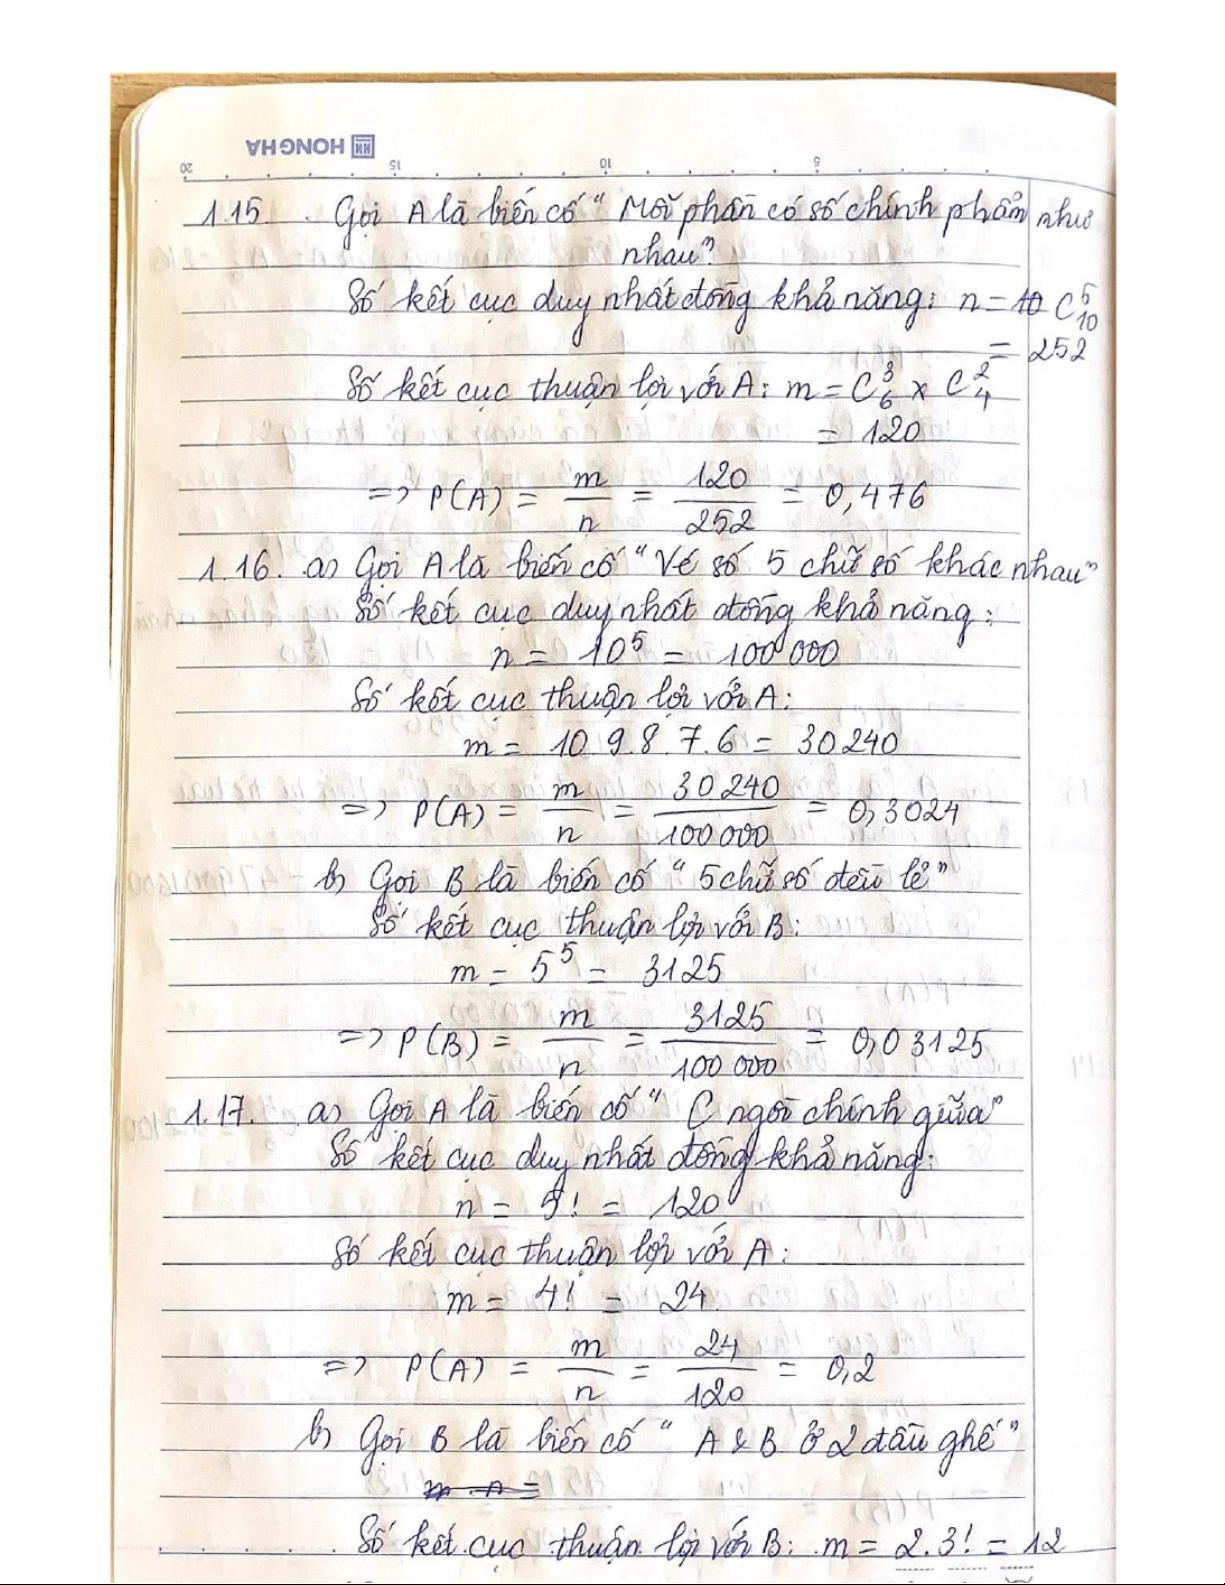 HONG HA
20 15 10 5
1.15. Gọi A là biến cố "Mỗi phần có số chính phẩm như
nhau"
Số kết cục duy nhất đồng khả năng: n = 10 C⁵₁₀
= 252
Số kết cục thuận lợi với A: m = C³₆ x C²₄
= 120
=> P(A) = m/n = 120/252 = 0,476
1.16. a) Gọi A là biến cố "Vé số 5 chữ số khác nhau"
Số kết cục duy nhất đồng khả năng:
n = 10⁵ = 100 000
Số kết cục thuận lợi với A:
m = 10.9.8.7.6 = 30 240
=> P(A) = m/n = 30 240/100 000 = 0,3024
b) Gọi B là biến cố "5 chữ số đều lẻ"
Số kết cục thuận lợi với B:
m = 5⁵ = 3125
=> P(B) = m/n = 3125/100 000 = 0,03125
1.17. a) Gọi A là biến cố "C ngồi chính giữa"
Số kết cục duy nhất đồng khả năng:
n = 5! = 120
Số kết cục thuận lợi với A:
m = 4! = 24
=> P(A) = m/n = 24/120 = 0,2
b) Gọi B là biến cố "A & B ở 2 đầu ghế"
Số kết cục thuận lợi với B: m = 2.3! = 12